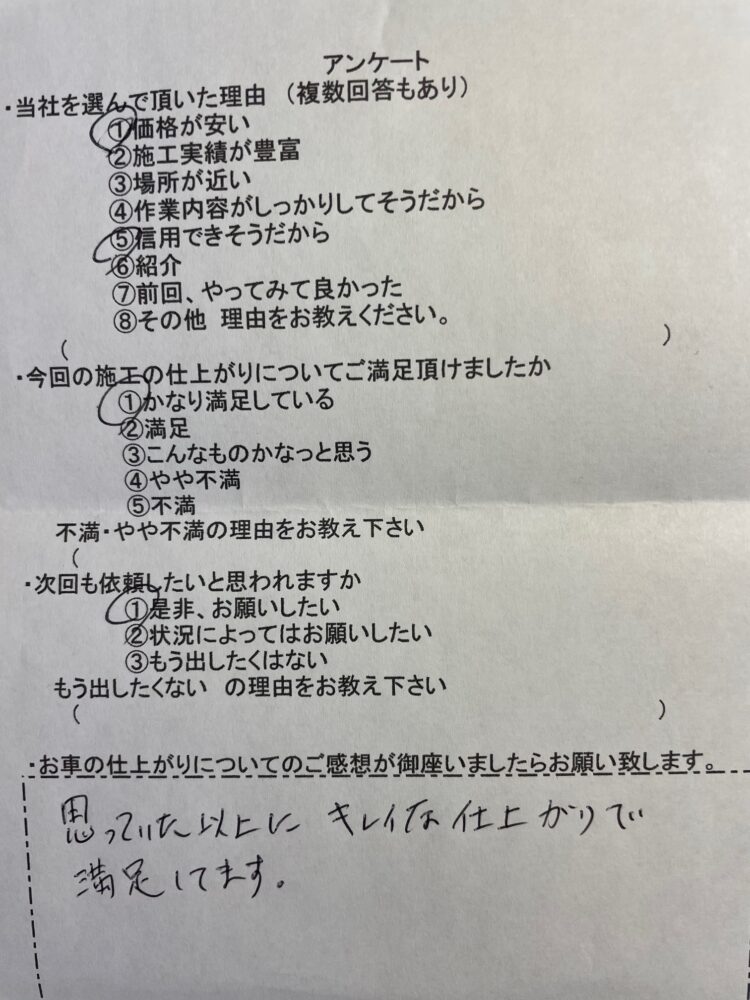 アンケート
・当社を選んで頂いた理由　（複数回答もあり）
①価格が安い
②施工実績が豊富
③場所が近い
④作業内容がしっかりしてそうだから
⑤信用できそうだから
⑥紹介
⑦前回、やってみて良かった
⑧その他　理由をお教えください。
（　）
・今回の施工の仕上がりについてご満足頂けましたか
①かなり満足している
②満足
③こんなものかなっと思う
④やや不満
⑤不満
不満・やや不満の理由をお教え下さい
（
・次回も依頼したいと思われますか
①是非、お願いしたい
②状況によってはお願いしたい
③もう出したくはない
もう出したくない　の理由をお教え下さい
（　）
・お車の仕上がりについてのご感想が御座いましたらお願い致します。
思っていた以上に キレイな仕上がりで
満足してます。